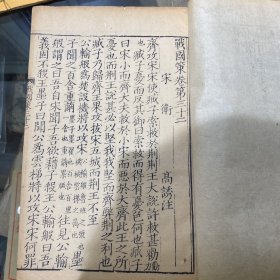 戰國策卷第三十二
宋衛
高誘注
齊攻宋宋使臧子索救於荊荊王大說許救甚勸臧
子憂而反其御曰索救而得有憂色何也臧子
曰宋小而齊大夫救於小宋而惡於大齊此王之所
憂也而荊王說甚必以堅我我堅而齊弊荊之利也
臧子乃歸齊王果攻拔宋五城而荊王不至
公輸般為楚設機將以攻宋墨
子聞之百舍重繭往見公輸
般謂之曰吾自宋聞子吾欲藉子殺王公輸般曰吾
義固不殺王墨子曰聞公為雲梯將以攻宋宋何罪